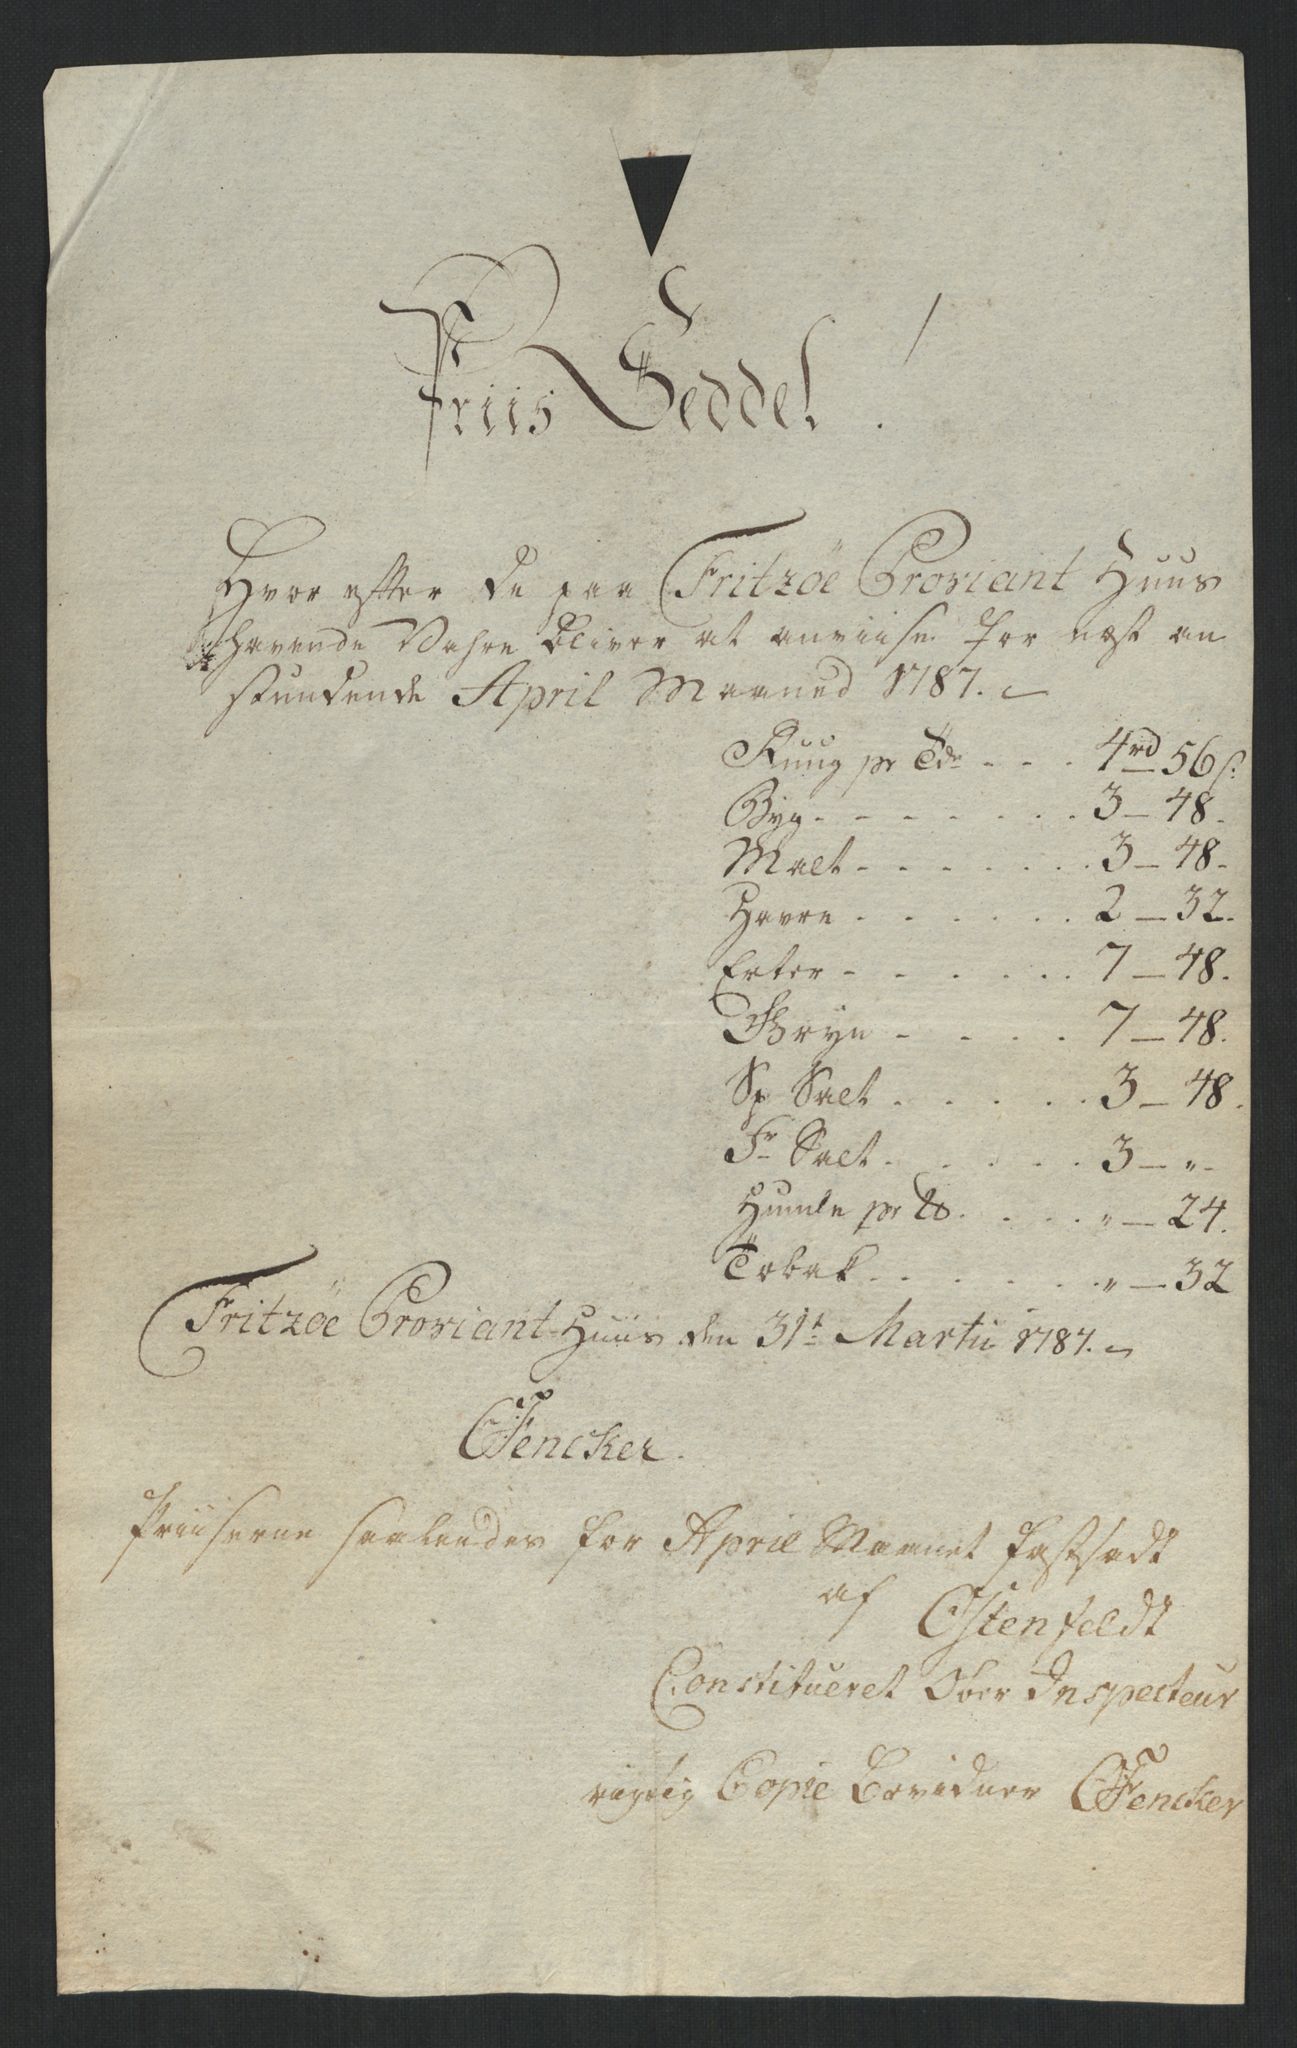 Priis Seddel.
Hvor efter de paa Fritzöe Proviant Huus
havende Vahre bliver at anviise for næst an
stundende April Maaned 1787.
Ruug pr Tde - - - 4rd 56 s.
Byg - - - - - - - 3 - 48.
Malt - - - - - - 3 - 48.
Havre - - - - - - 2 - 32.
Erter - - - - - - 7 - 48.
Gryn - - - - 7 - 48.
Sp Salt - - - - - 3 - 48.
Fr Salt - - - - - 3 - "
Humle pr ℔ - - - - " - 24.
Tobak - - - - - - " - 32
Fritzöe Proviant Huus den 31t Martii 1787.
CFencker.
Priiserne saaledes for April Maanet fastsadt
af Ostenfeldt
Constitueret Ober Inspecteur
rigtig Copie Bevidner CFencker